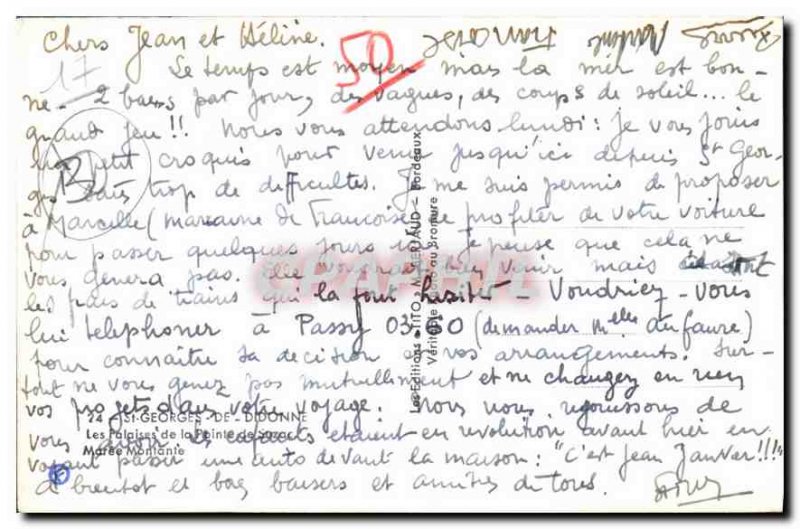 Chers Jean et Hélène.
50
17
Le temps est moyen mais la mer est bon-
ne - 2 bains par jour, des vagues, des coups de soleil... le
grand jeu !! Nous vous attendons lundi : je vous joins
un petit croquis pour venir jusqu'ici depuis St Geor-
ges sans trop de difficultés. Je me suis permis de proposer
à Marcelle (marraine de Françoise) de profiter de votre voiture
pour passer quelques jours ici je pense que cela ne
vous genera pas. elle voudrait bien venir mais ce sont
les frais de trains qui la font hésiter - Voudriez-vous
lui telephoner à Passy 03 60 (demander Melle Dufaure)
pour connaître sa decision et vos arrangements. Sur-
tout ne vous genez pas mutuellement et ne changez en rien
vos projets dans votre voyage. Nous nous réjouissons de
vous Les enfants etaient en revolution avant hier en
voyant passer une auto devant la maison : "C'est Jean Janvier !!!"
à bientôt et bons baisers et amitiés de tous.
24 - ST-GEORGES-DE-DIDONNE
Les Falaises de la Pointe de Suzac
Marée Montante
Les Editions "TITO" - Bordeaux
Véritable Photo au Bromure
CPARAMA